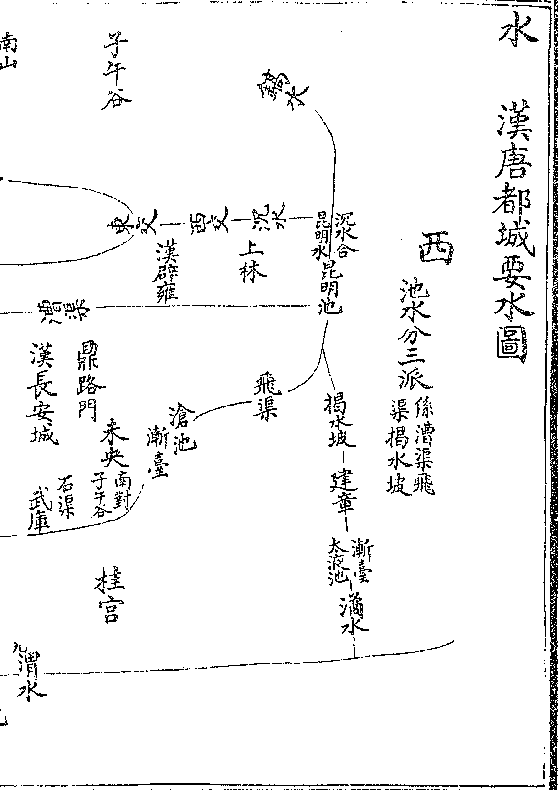 水　漢唐都城要水圖
西
池水分三派
係漕渠飛
渠揭水坡
鎬水
沉水合
昆明水
昆明池
沉水
西交
東交
上林
漢辟雍
子午谷
南山
漕渠
飛渠
滄池
漸臺
揭水坡
建章
漸臺
太液池
潏水
鼎路門
漢長安城
未央
南對
子午谷
石渠
武庫
桂宮
渭水